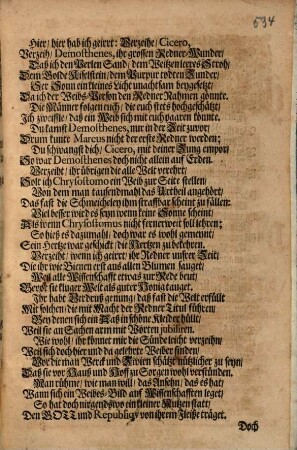 534
Hier/ hier hab ich geirrt: Verzeihe/ Cicero,
Verzeih/ Demosthenes, ihr grossen Redner-Wunder/
Daß ich den Perlen Sand/ dem Weitzen leeres Stroh/
Dem Golde Kieselstein/ dem Purpur todten Zunder/
Der Sonn ein kleines Licht unachtsam beygesetzt;
Da ich der Weibs-Person den Redner Nahmen gönnte.
Die Männer folgen euch/ die euch stets hochgeschätzt/
Ich zweifle/ daß ein Weib sich mit euch paaren könnte.
Du kamst Demosthenes, nur in der Zeit zuvor;
Drum kunte Marcus nicht der erste Redner werden;
Du schwangst dich/ Cicero, mit deiner Zung empor/
So war Demosthenes doch nicht allein auf Erden.
Verzeiht/ ihr übrigen die alle Welt verehrt/
Solt ich Chrysostomo ein Weib zur Seite stellen/
Von dem man tausendmahl das Urtheil angehört/
Das fast die Schmeicheley ihm straffbar scheint zu fällen:
Viel besser wird es seyn wenn keine Sonne scheint/
Als wenn Chrysostomus nicht ferner weit soll lehren;
So hieß es dazumahl/ doch war es wohl gemeint/
Sein Hertze war geschickt/ die Hertzen zu bekehren.
Verzeihet/ wenn ich geirrt/ ihr Redner unsrer Zeit/
Die ihr wie Bienen erst aus allen Blumen sauget/
Weil alle Wissenschafft etwas zur Rede beut/
Bevor die kluger Welt als guter Honig tauget.
Ihr habt Verdruß genung/ daß fast die Welt erfüllt
Mit solchen/ die mit Macht der Redner Titul führen/
Bey denen sich ein Haß in schöne Kleider hüllt/
Weil sie an Sachen arm mit Worten jubiliren.
Wie wohl/ ihr könnet mir die Sünde leicht verzeihn/
Weil sich doch hier und da gelehrte Weiber finden/
Vor die man Werck und Zwirn schätzt nützlicher zu seyn/
Daß sie vor Hauß und Hoff zu Sorgen wohl verstünden.
Man rühme/ wie man will/ das Ansehn/ das es hat/
Wann sich ein Weibes-Bild auf Wissenschafften leget/
So hat doch nirgendswo ein kleiner Nutzen statt/
Den GOTT und Republiqv von ihrem Fleiße träget.
Doch